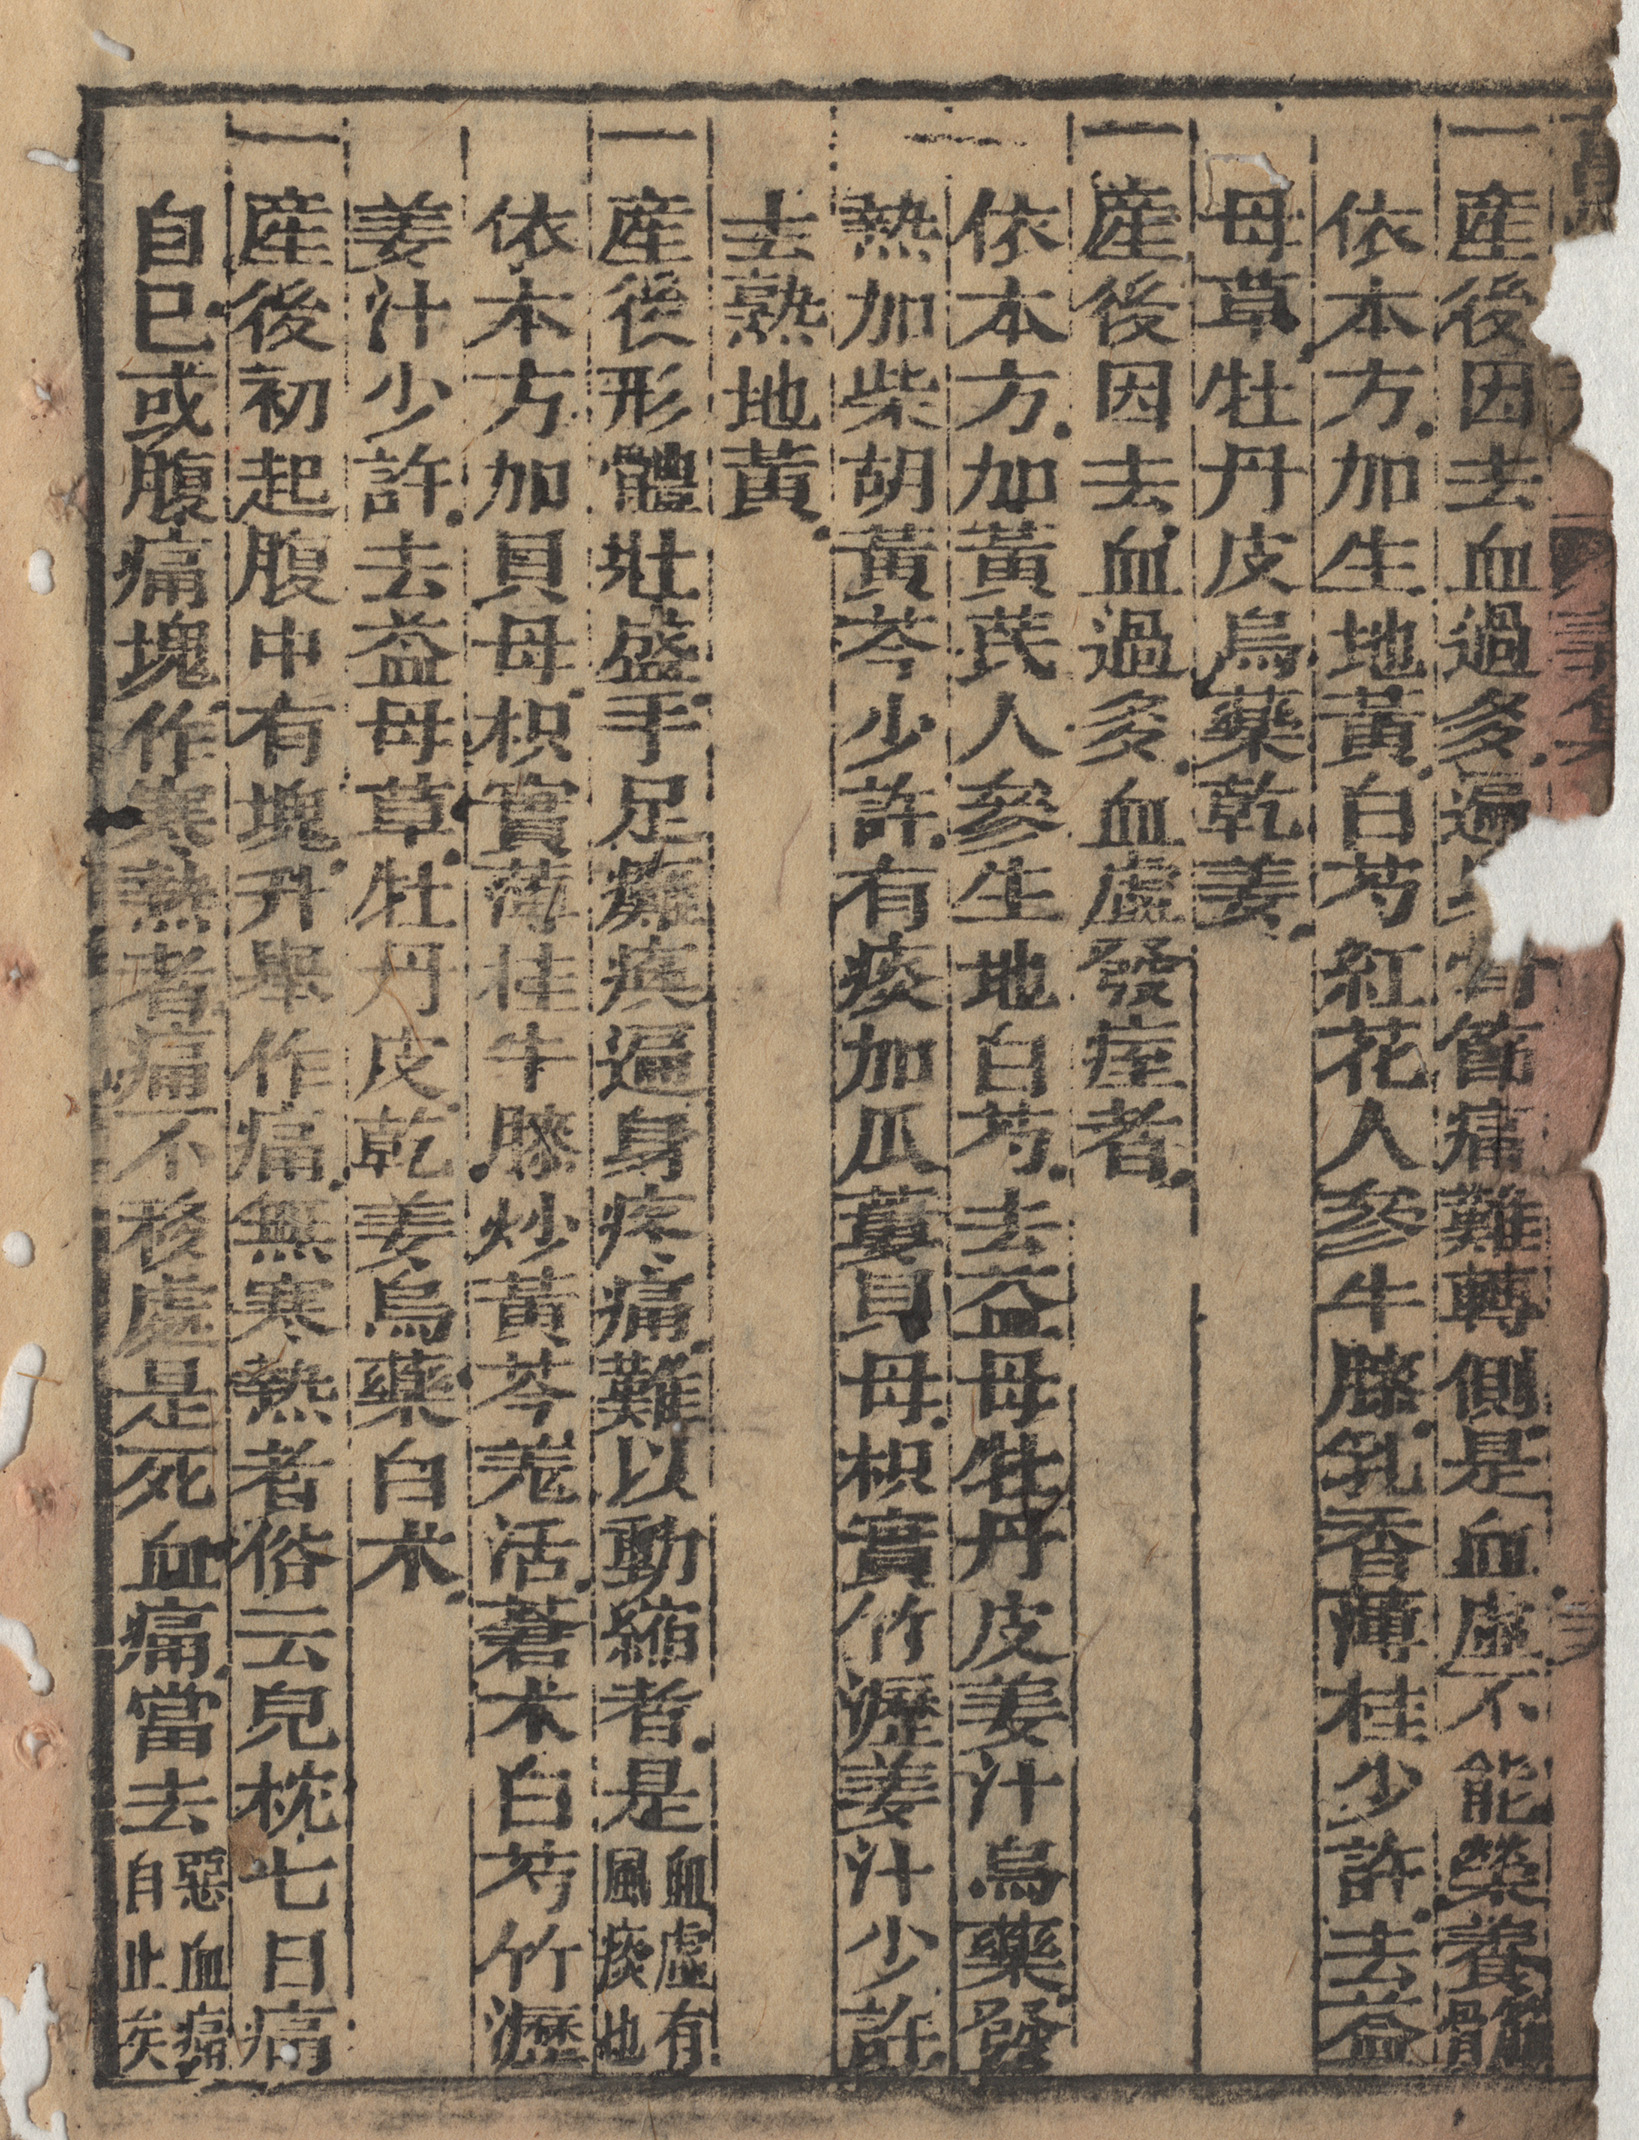 一產後因去血過多遍身骨節痛難轉側是血虛不能榮養筋骨
依本方加生地黃白芍紅花人參牛膝乳香薄桂少許去益
母草牡丹皮烏藥乾姜
一產後因去血過多血虛發痓者
依本方加黃芪人參生地白芍去益母牡丹皮姜汁烏藥發
熱加柴胡黃芩少許有痰加瓜蔞貝母枳實竹瀝姜汁少許
去熟地黃
一產後形體壯盛手足癱瘓遍身疼痛難以動縮者是血虛有風痰也
依本方加貝母枳實薄桂牛膝炒黃芩羗活蒼术白芍竹瀝
姜汁少許去益母草牡丹皮乾姜烏藥白术
一產後初起腹中有塊升舉作痛無寒熱者俗云兒枕七日痛
自已或腹痛塊作寒熱者痛不移處是死血痛當去惡血痛自止矣